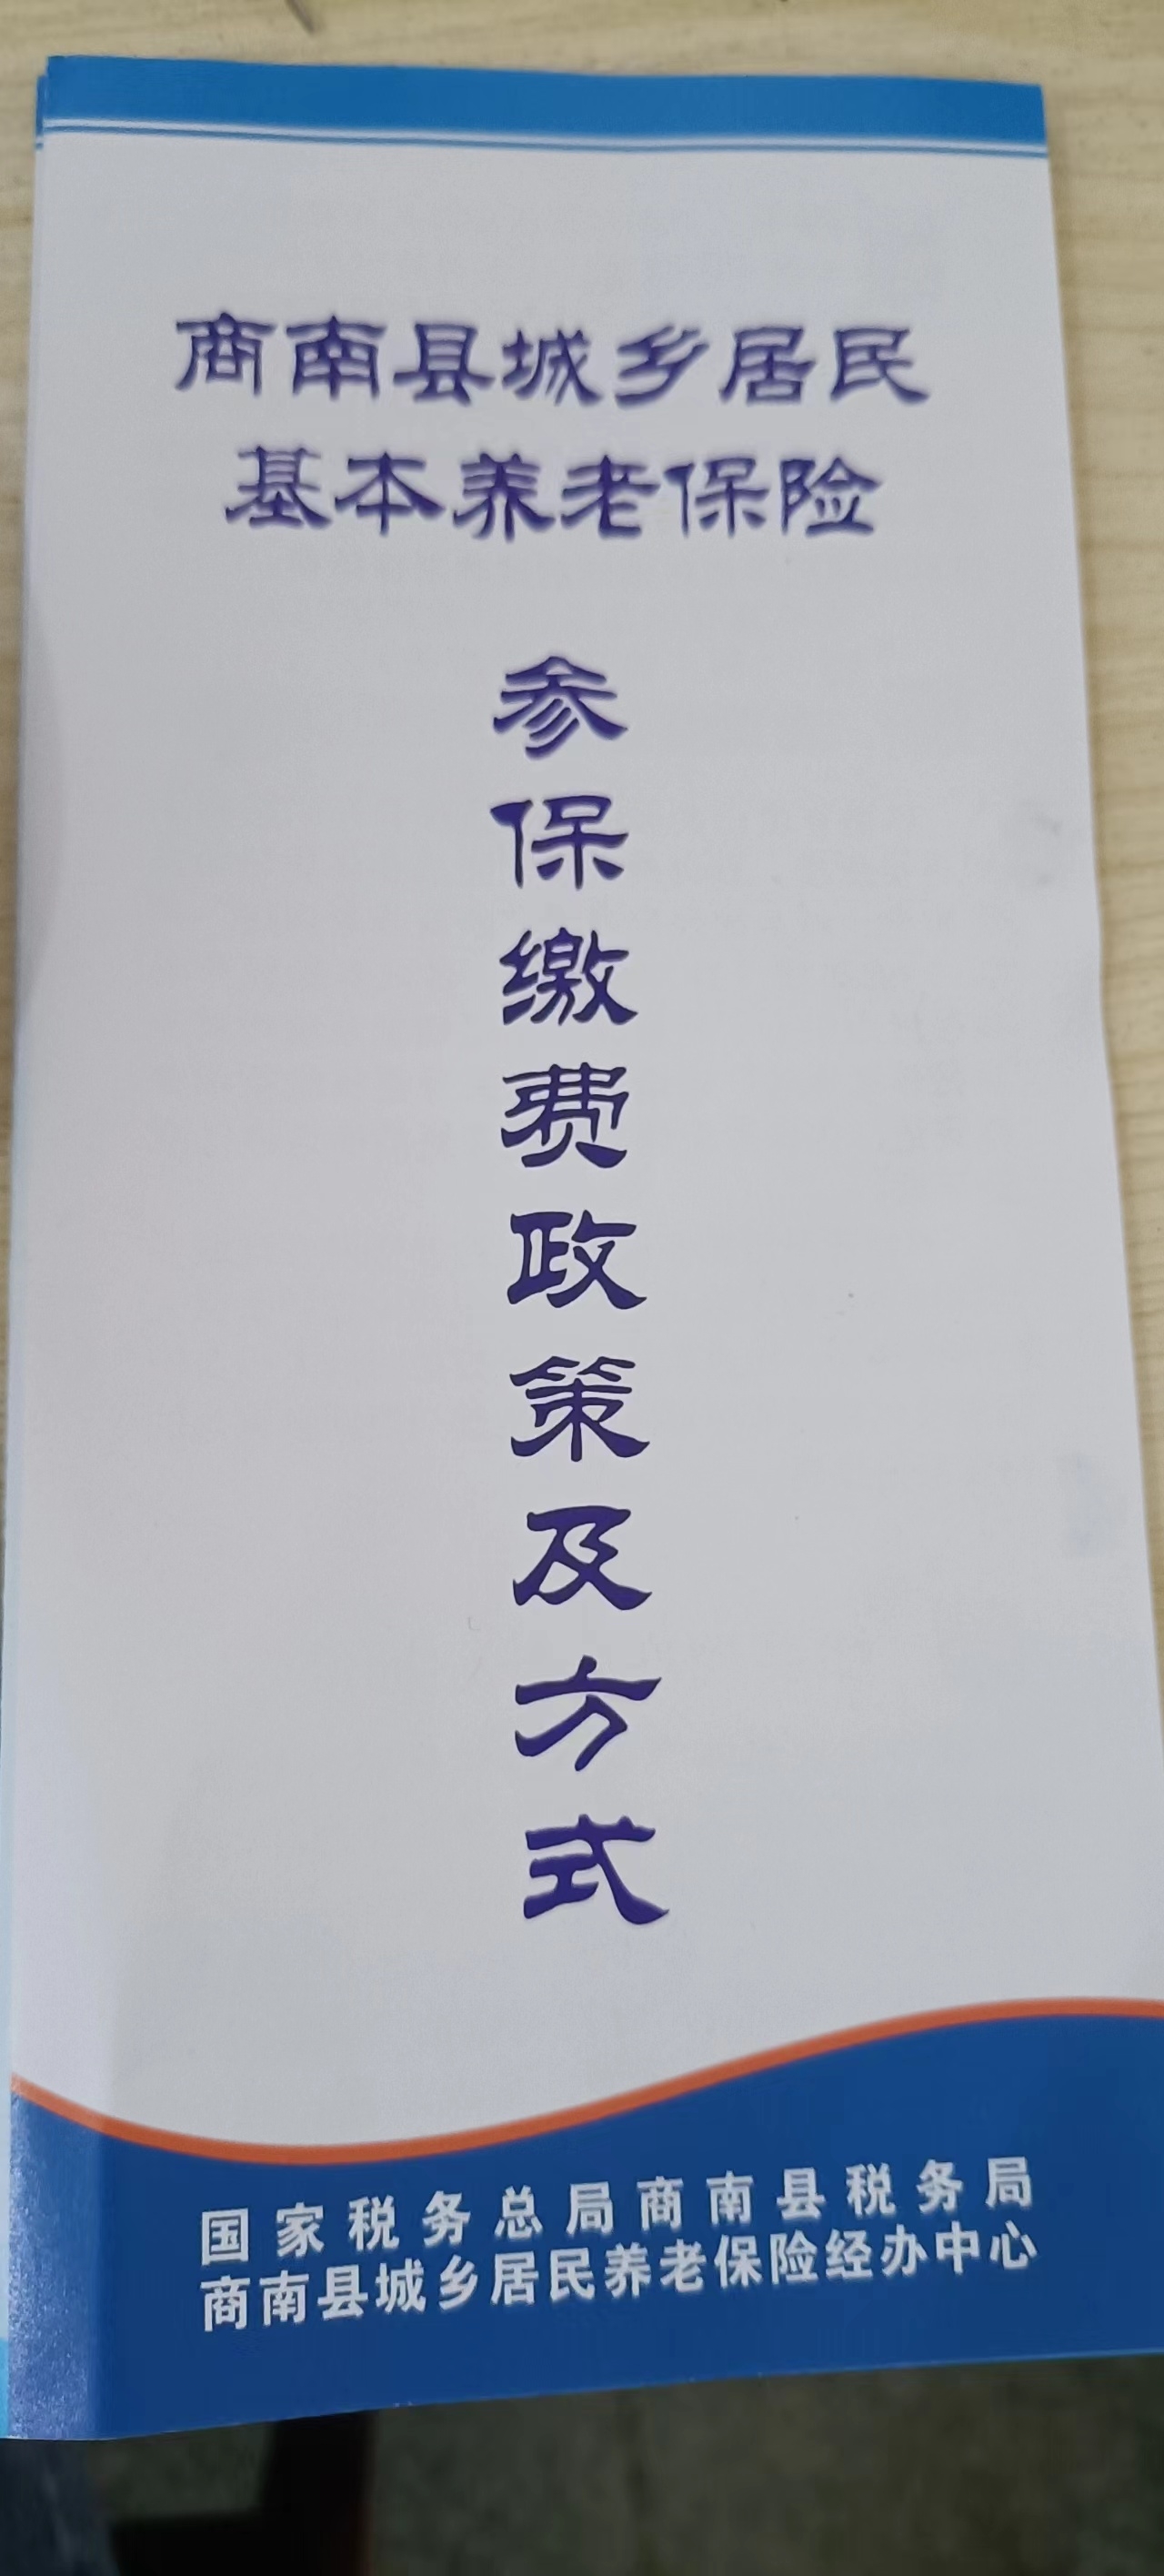 商南县城乡居民
基本养老保险
参保缴费政策及方式
国家税务总局商南县税务局
商南县城乡居民养老保险经办中心